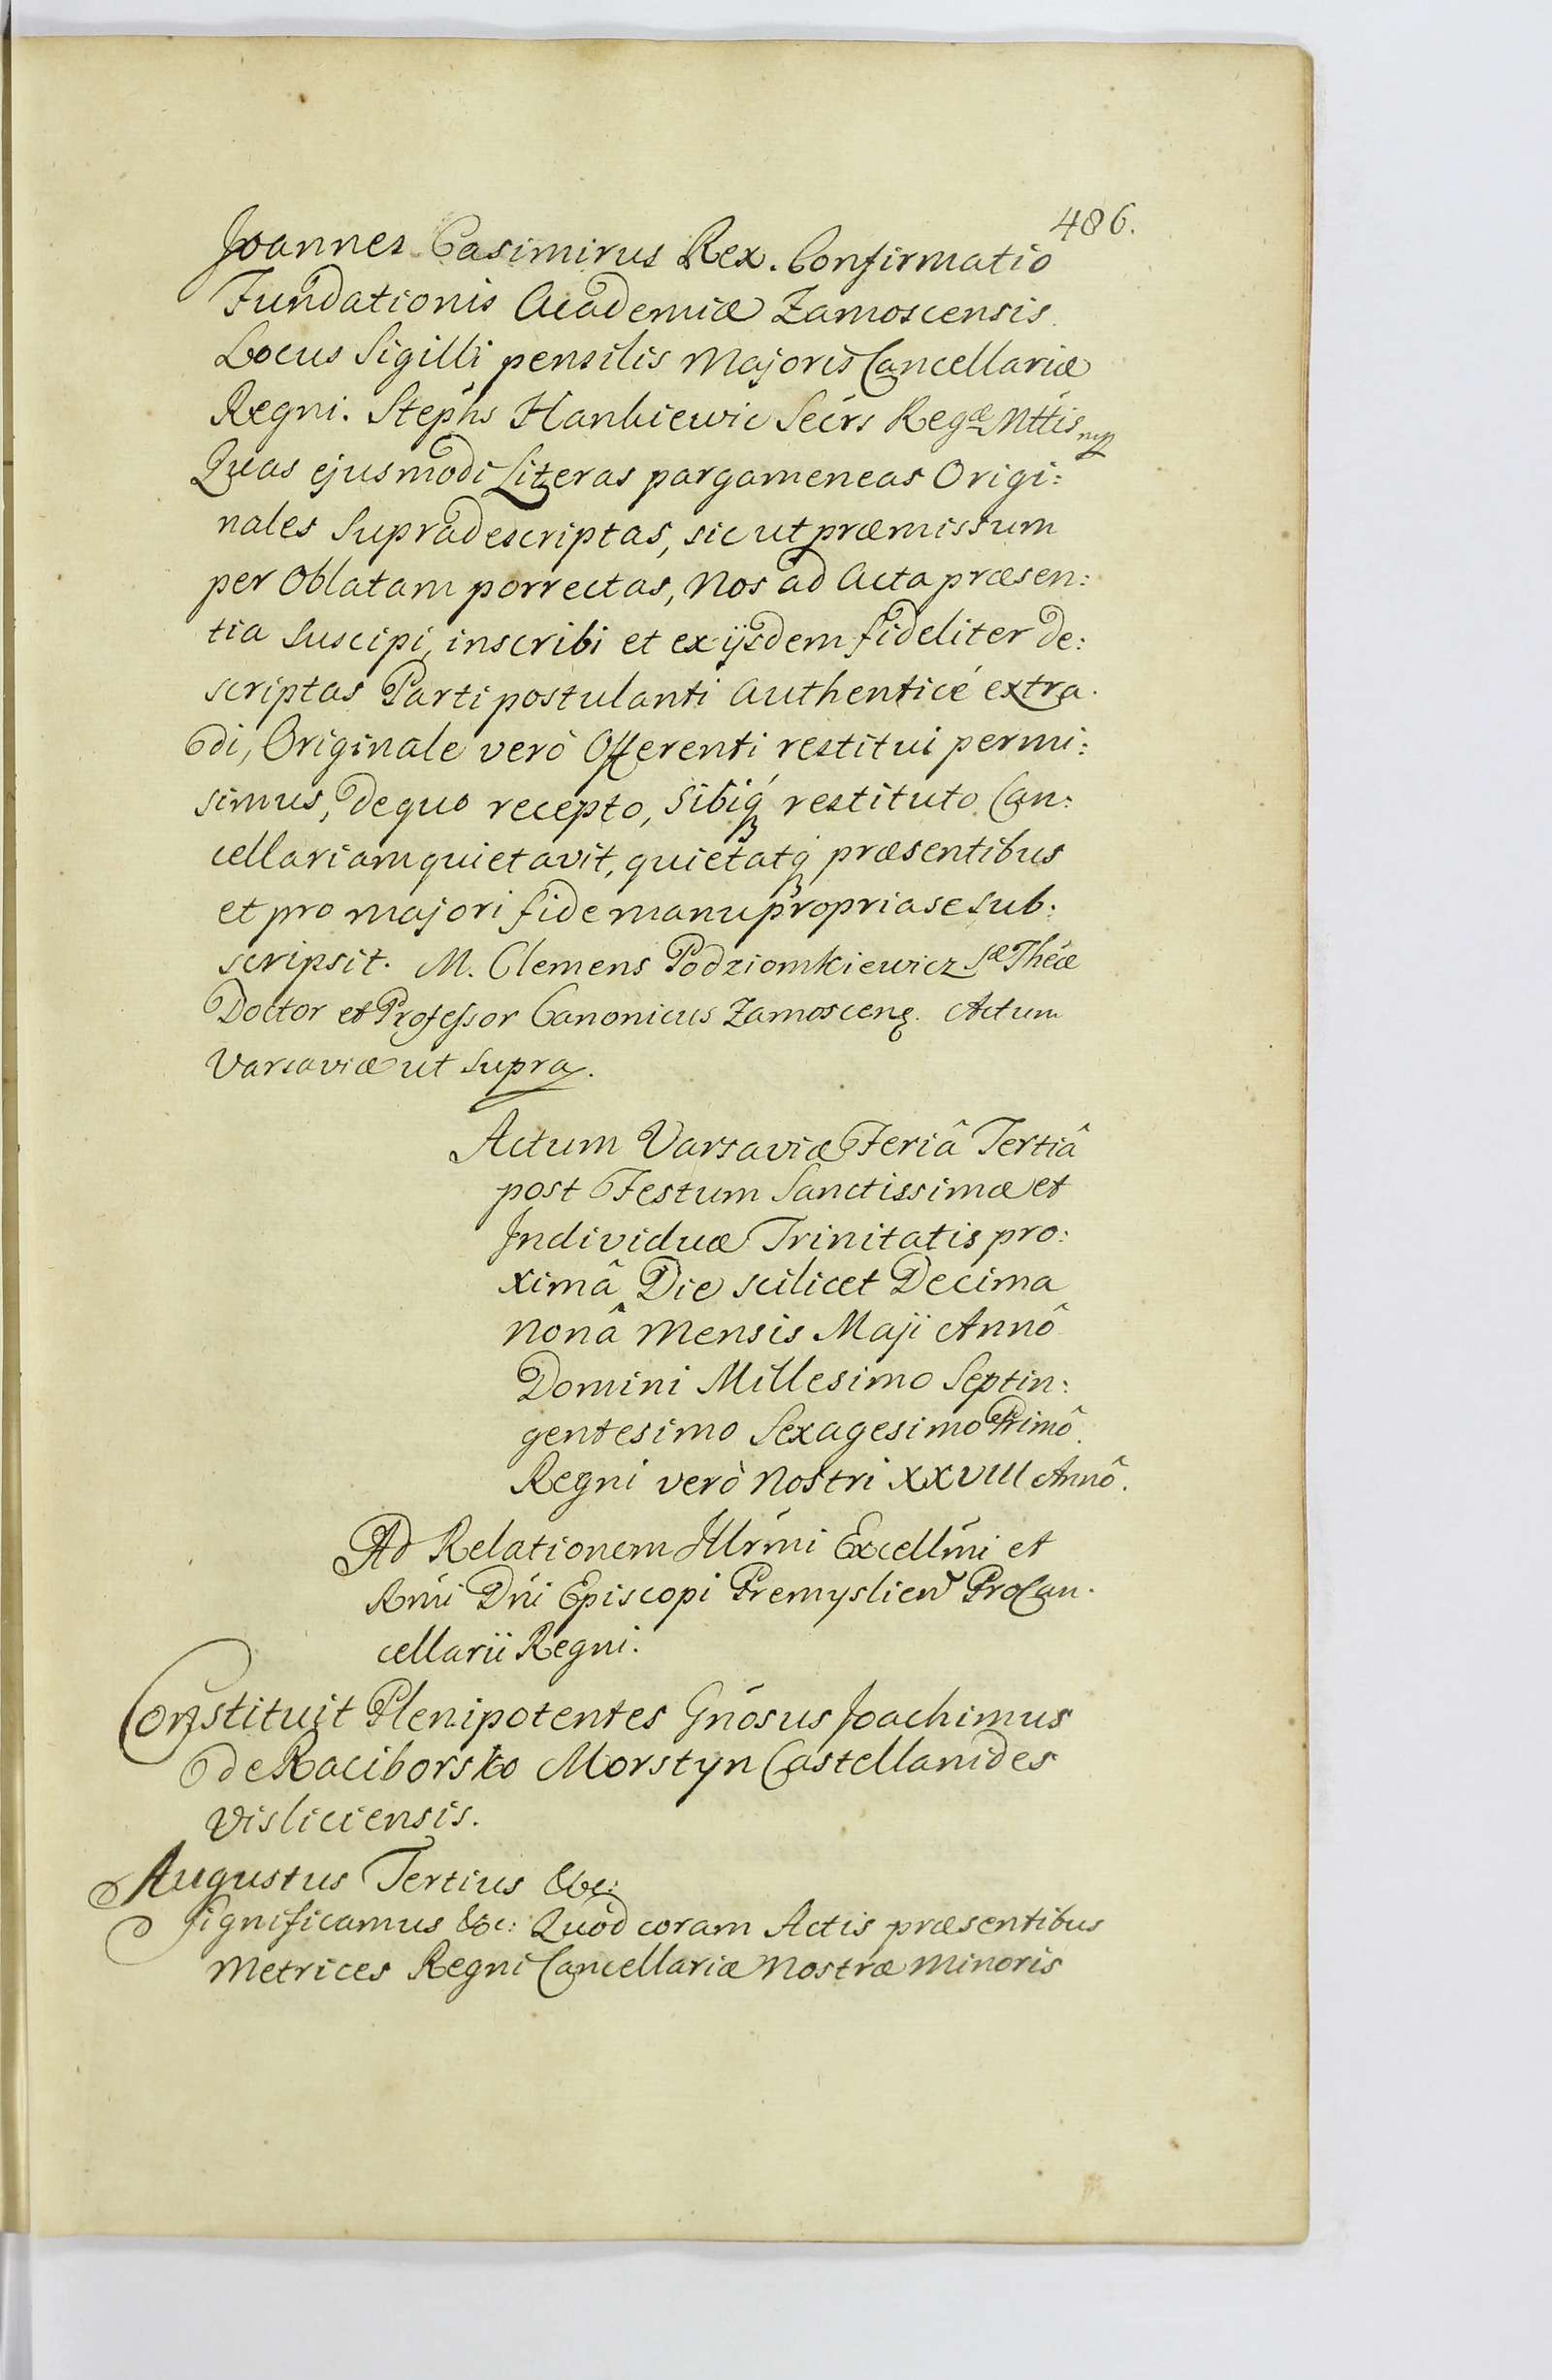 486.
Joannes Casimirus Rex. Confirmatio
Fundationis Academiæ Zamoscensis.
Locus Sigilli pensilis Majoris Cancellariæ
Regni. Stephs Hankiewic Secrs Regæ Mttis mp
Quas ejusmodi Literas pargameneas Origi:
nales Supradescriptas, sicut præmissum
per Oblatam porrectas, Nos ad Acta præsen:
tia Suscipi, inscribi et ex ijsdem fideliter de:
scriptas Parti postulanti Authenticé extra.
di, Originale verò Offerenti restitui permi:
simus, de quo recepto, Sibiq́ restituto Can:
cellariam quietavit, quietatq́ præsentibus
et pro majori fide manu propria se sub:
scripsit. M. Clemens Podziomkiewicz Sæ Thěæ
Doctor et Professor Canonicus Zamoscenę. Actum
Varsaviæ ut Supra.
Actum Varsaviæ Feriâ Tertiâ
post Festum Sanctissimæ et
Individuæ Trinitatis pro:
ximâ Die scilicet Decima
Nonâ Mensis Maji Annô
Domini Millesimo Septin:
gentesimo Sexagesimo Primô.
Regni verò Nostri XXVIII Annô.
Ad Relationem Illrḿi Excellḿi et
Rńui Dńi Episcopi Premyslien̄ ProCan.
cellarii Regni.
Constituit Plenipotentes Gńosus Joachimus
de Raciborsko Morstyn Castellanides
Visliciensis.
Augustus Tertius &c:
Significamus &c: Quòd coram Actis præsentibus
Metrices Regni Cancellariæ Nostræ Minoris